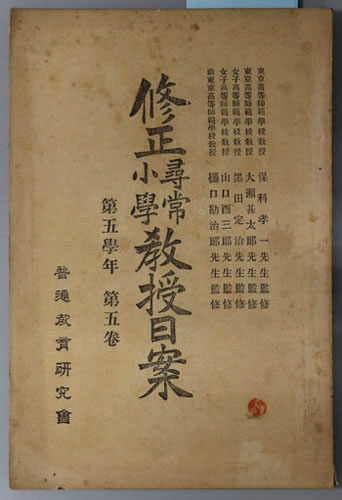 東京高等師範學校教授 保科孝一先生監修
東京高等師範學校教授 大瀬甚太郎先生監修
女子高等師範學校教授 黑田定治先生監修
女子高等師範學校教授 山口酉三郎先生監修
前東京高等師範學校教授 樋口勘治郎先生監修
修正尋常小學教授日案
第五學年 第五卷
普通敎育研究會